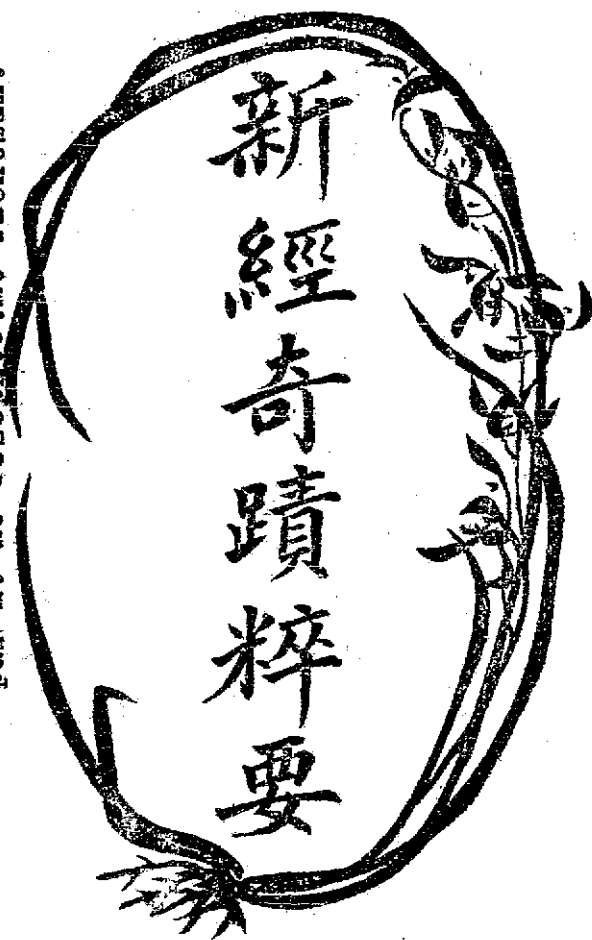 新經奇蹟粹要